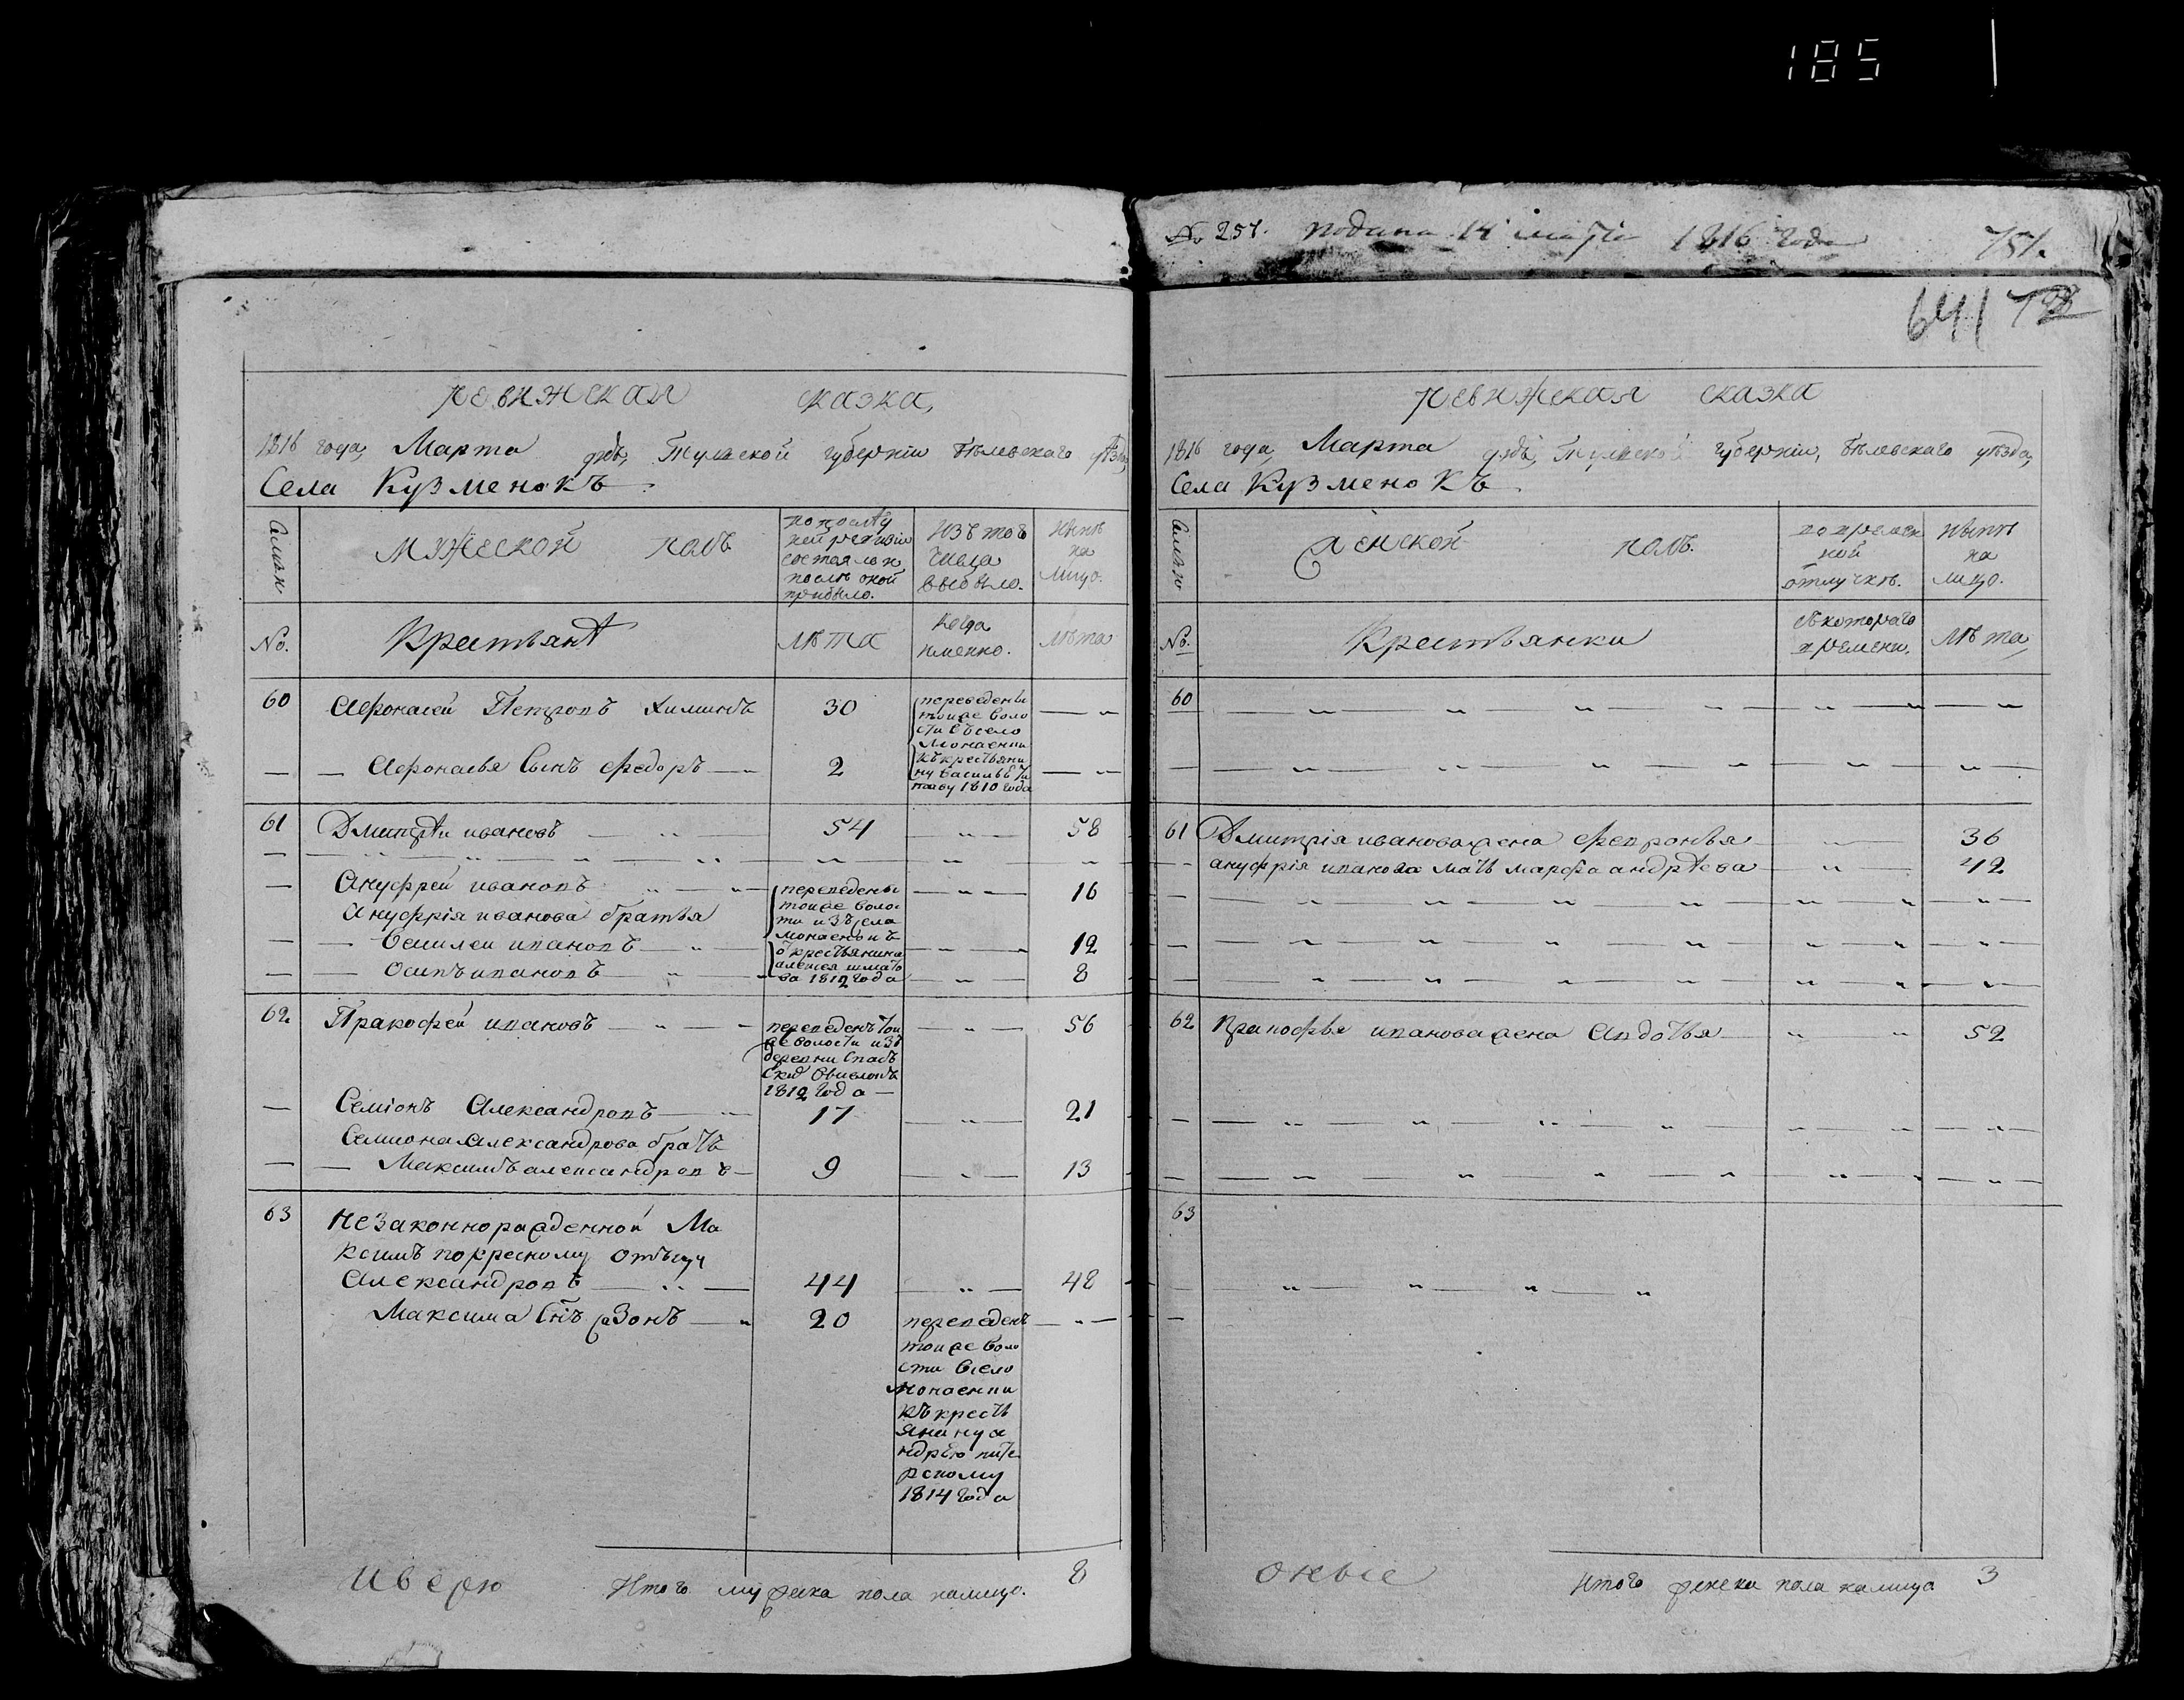 185
№ 257. подана 14 маrта 1816 года
757.
641
Ревижская сказка,
1816 года, Марта дня, Тульской губернiи Бѣлевскаго уѣзда,
Села Кузменокъ.
Семьи
мужеской полъ
по послѣд
ней ревизiи
состояло и
послѣ оной
прибыло.
Изъ того
числа
выбыло.
Нынѣ
на
лицо.
No.
Крестьянѣ
лѣта
Когда
именно.
лѣта
60 Афонасей Петровъ 30
переведены
тойже воло
сти въ село
Монаенки
къ крестьяни
ну василью
1810 года
— — Афонасья Сынъ федоръ — 2
61 Дмитрѣй ивановъ — 54 — 58
— Ануфрей ивановъ — 16
Ануфрiя иванова братья
переведены
тойже волос
ти изъ села
Монаенокъ
отъ крестьянина
алексея
1812 года
— — Василей ивановъ — 12
— — Осипъ ивановъ — 8
62 Пракофей ивановъ — 56
переведенъ той
же волости изъ
деревни Спасъ
1812 года —
— Семiонъ Александровъ — 17 — 21
Семиона Александрова братъ
— — Максимъ александровъ — 9 — 13
63 Незаконнорожденной Ма
ксимъ по кресному отъцу
Александровъ — 44 — 48
Максима Сiнъ Сазонъ — 20
переведенъ
тойже воло
сти всело
Монаенки
къ кресть
янину а
ндрѣю пите
рскому
1814 года
И в ерю
Итого мужеска пола налицо. 8
Ревижская сказка
1816 года, Марта дня, Тульской губернiи, Бѣлевскаго уѣзда,
Села Кузменокъ.
Семьи
женской полъ.
во времен
ной
отлучкѣ.
Нынѣ
на
лицо.
No.
Крестьянки
съ котораго
времени.
лѣта,
60
61 Дмитрiя иванова жена февронья — 36
ануфрiя иванова мать марфа андрѣева — 42
62 Пракофья иванова жена Авдотья — 52
63
оные
Итого женска пола налицо 3